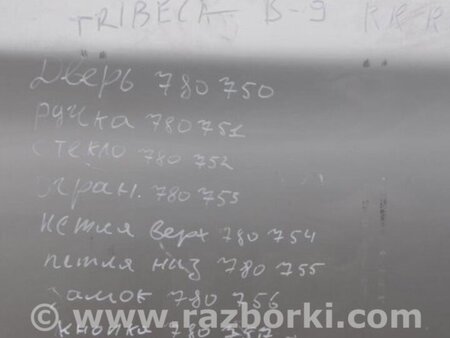 TRIBECA B-9 RR R
Дверь 780 750
ручка 780 751
стекло 780 752
огран. 780 753
петля верх 780 754
петля низ 780 755
замок 780 756
кнопка 780 757
www.razborki.com